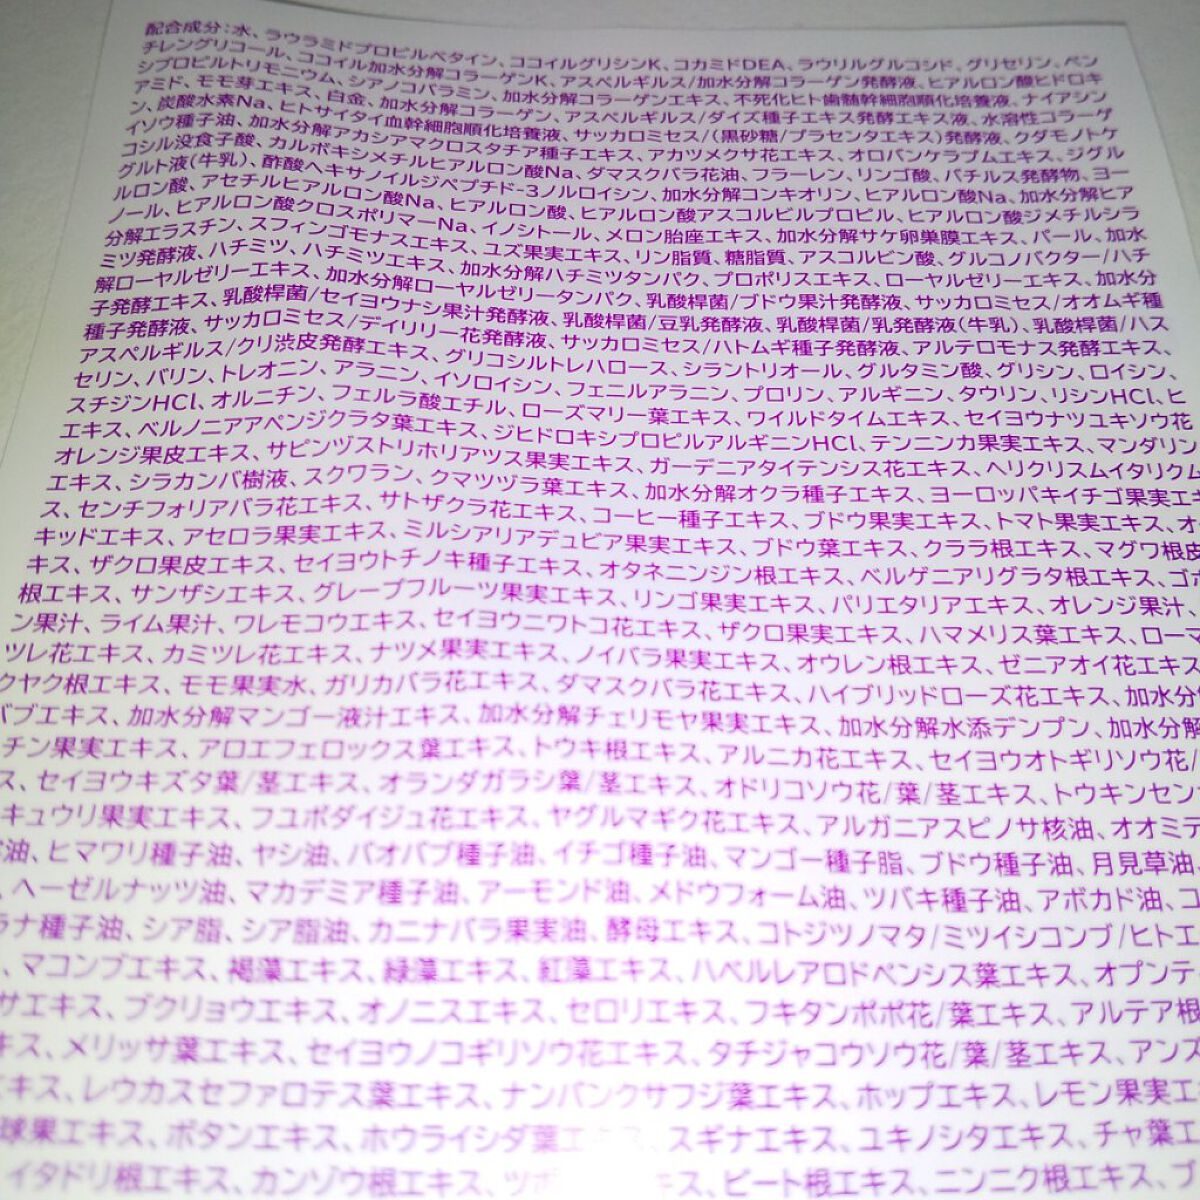 配合成分:水、ラウラミドプロピルベタイン、ココイルグリシンK、コカミドDEA、ラウリルグルコシド、グリセリン、ペン
チレングリコール、ココイル加水分解コラーゲンK、アスペルギルス/加水分解コラーゲン発酵液、ヒアルロン酸ヒドロキ
シプロピルトリモニウム、シアノコバラミン、加水分解コラーゲンエキス、不死化ヒト歯髄幹細胞順化培養液、ナイアシン
アミド、モモ芽エキス、白金、加水分解コラーゲン、アスペルギルス/ダイズ種子エキス発酵エキス液、水溶性コラーゲ
ン、炭酸水素Na、ヒトサイタイ血幹細胞順化培養液、サッカロミセス/(黒砂糖/プラセンタエキス)発酵液、クダモノトケ
イソウ種子油、加水分解アカシアマクロスタチア種子エキス、アカツメクサ花エキス、オロバンケラプムエキス、ジグル
コシル没食子酸、カルボキシメチルヒアルロン酸Na、ダマスクバラ花油、フラーレン、リンゴ酸、バチルス発酵物、ヨー
グルト液(牛乳)、酢酸ヘキサノイルジペプチド-3ノルロイシン、加水分解コンキオリン、ヒアルロン酸Na、加水分解ヒア
ルロン酸、アセチルヒアルロン酸Na、ヒアルロン酸、ヒアルロン酸アスコルビルプロピル、ヒアルロン酸ジメチルシラ
ノール、ヒアルロン酸クロスポリマーNa、イノシトール、メロン胎座エキス、加水分解サケ卵巣膜エキス、パール、加水
分解エラスチン、スフィンゴモナスエキス、ユズ果実エキス、リン脂質、糖脂質、アスコルビン酸、グルコノバクター/ハチ
ミツ発酵液、ハチミツ、ハチミツエキス、加水分解ハチミツタンパク、プロポリスエキス、ローヤルゼリーエキス、加水分
解ローヤルゼリーエキス、加水分解ローヤルゼリータンパク、乳酸桿菌/ブドウ果汁発酵液、サッカロミセス/オオムギ種
子発酵エキス、乳酸桿菌/セイヨウナシ果汁発酵液、乳酸桿菌/豆乳発酵液、乳酸桿菌/乳発酵液(牛乳)、乳酸桿菌/ハス
種子発酵液、サッカロミセス/デイリリー花発酵液、サッカロミセス/ハトムギ種子発酵液、アルテロモナス発酵エキス、
アスペルギルス/クリ渋皮発酵エキス、グリコシルトレハロース、シラントリオール、グルタミン酸、グリシン、ロイシン、
セリン、バリン、トレオニン、アラニン、イソロイシン、フェニルアラニン、プロリン、アルギニン、タウリン、リシンHCl、ヒ
スチジンHCl、オルニチン、フェルラ酸エチル、ローズマリー葉エキス、ワイルドタイムエキス、セイヨウナツユキソウ花
エキス、ベルノニアアペンジクラタ葉エキス、ジヒドロキシプロピルアルギニンHCl、テンニンカ果実エキス、マンダリン
オレンジ果皮エキス、サピンヅストリホリアツス果実エキス、ガーデニアタイテンシス花エキス、ヘリクリスムイタリクム
エキス、シラカンバ樹液、スクワラン、クマツヅラ葉エキス、加水分解オクラ種子エキス、ヨーロッパキイチゴ果実エキ
ス、センチフォリアバラ花エキス、サトザクラ花エキス、コーヒー種子エキス、ブドウ果実エキス、トマト果実エキス、オ
キッドエキス、アセロラ果実エキス、ミルシアリアデュビア果実エキス、ブドウ葉エキス、クララ根エキス、マグワ根皮
キス、ザクロ果皮エキス、セイヨウトチノキ種子エキス、オタネニンジン根エキス、ベルゲニアリグラタ根エキス、ゴボ
根エキス、サンザシエキス、グレープフルーツ果実エキス、リンゴ果実エキス、パリエタリアエキス、オレンジ果汁、
ン果汁、ライム果汁、ワレモコウエキス、セイヨウニワトコ花エキス、ザクロ果実エキス、ハマメリス葉エキス、ローマ
ツレ花エキス、カミツレ花エキス、ナツメ果実エキス、ノイバラ果実エキス、オウレン根エキス、ゼニアオイ花エキス
クヤク根エキス、モモ果実水、ガリカバラ花エキス、ダマスクバラ花エキス、ハイブリッドローズ花エキス、加水分
バブエキス、加水分解マンゴー液汁エキス、加水分解チェリモヤ果実エキス、加水分解水添デンプン、加水分解
チン果実エキス、アロエフェロックス葉エキス、トウキ根エキス、アルニカ花エキス、セイヨウオトギリソウ花/
ス、セイヨウキズタ葉/茎エキス、オランダガラシ葉/茎エキス、オドリコソウ花/葉/茎エキス、トウキンセン
キュウリ果実エキス、フユボダイジュ花エキス、ヤグルマギク花エキス、アルガニアスピノサ核油、オオミテ
油、ヒマワリ種子油、ヤシ油、バオバブ種子油、イチゴ種子油、マンゴー種子脂、ブドウ種子油、月見草油、
、ヘーゼルナッツ油、マカデミア種子油、アーモンド油、メドウフォーム油、ツバキ種子油、アボカド油、コ
ラナ種子油、シア脂、シア脂油、カニナバラ果実油、酵母エキス、コトジツノマタ/ミツイシコンブ/ヒトエ
、マコンブエキス、褐藻エキス、緑藻エキス、紅藻エキス、ハベルレアロドペンシス葉エキス、オプンテ
サエキス、ブクリョウエキス、オノニスエキス、セロリエキス、フキタンポポ花/葉エキス、アルテア根
キス、メリッサ葉エキス、セイヨウノコギリソウ花エキス、タチジャコウソウ花/葉/茎エキス、アンズ
エキス、レウカスセファロテス葉エキス、ナンバンクサフジ葉エキス、ホップエキス、レモン果実エ
球果エキス、ボタンエキス、ホウライシダ葉エ スギナエキス、ユキノシタエキス、チャ葉エ
イタドリ根エキス、カンゾウ根エキス、ツボ キス、ビート根エキス、ニンニク根エキス、ブ